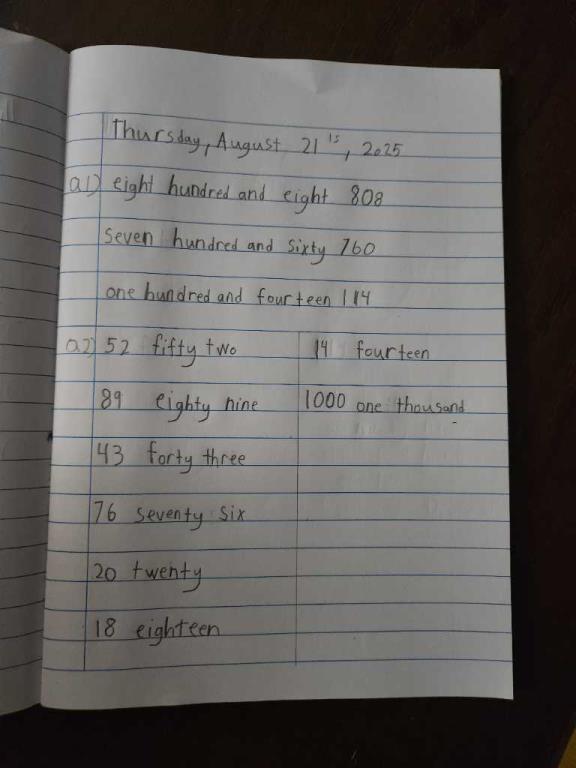 Thursday, August 21 1s, 2025
Q1) eight hundred and eight 808
seven hundred and sixty 760
one hundred and fourteen 114
Q2) 52 fifty two
14 fourteen
89 eighty nine
1000 one thousand
43 forty three
76 seventy six
20 twenty
18 eighteen